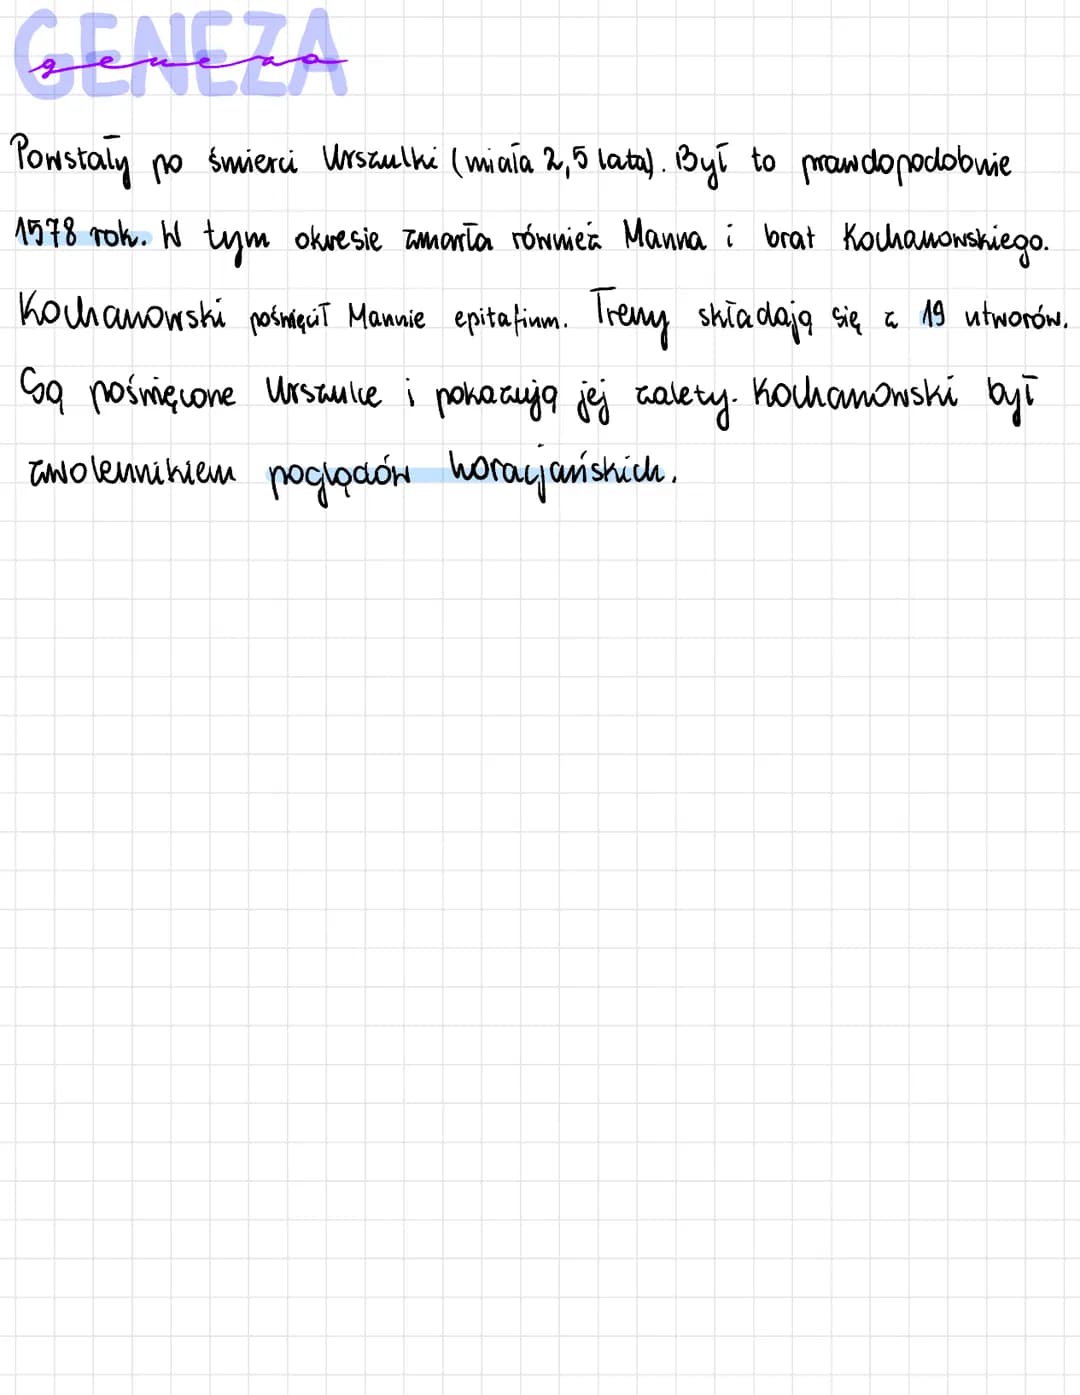 GENEZA
geneza
Powstały po śmierci Urszulki (miała 2,5 lata). Był to prawdopodobnie
1578 rok. W tym okresie zmarła również Hanna i brat Kochanowskiego.
Kochanowski poświęcił Hannie epitafium. Treny składają się z 19 utworów.
Są poświęcone Urszulce i pokazują jej zalety. Kochanowski był
zwolennikiem poglądów horacjańskich.